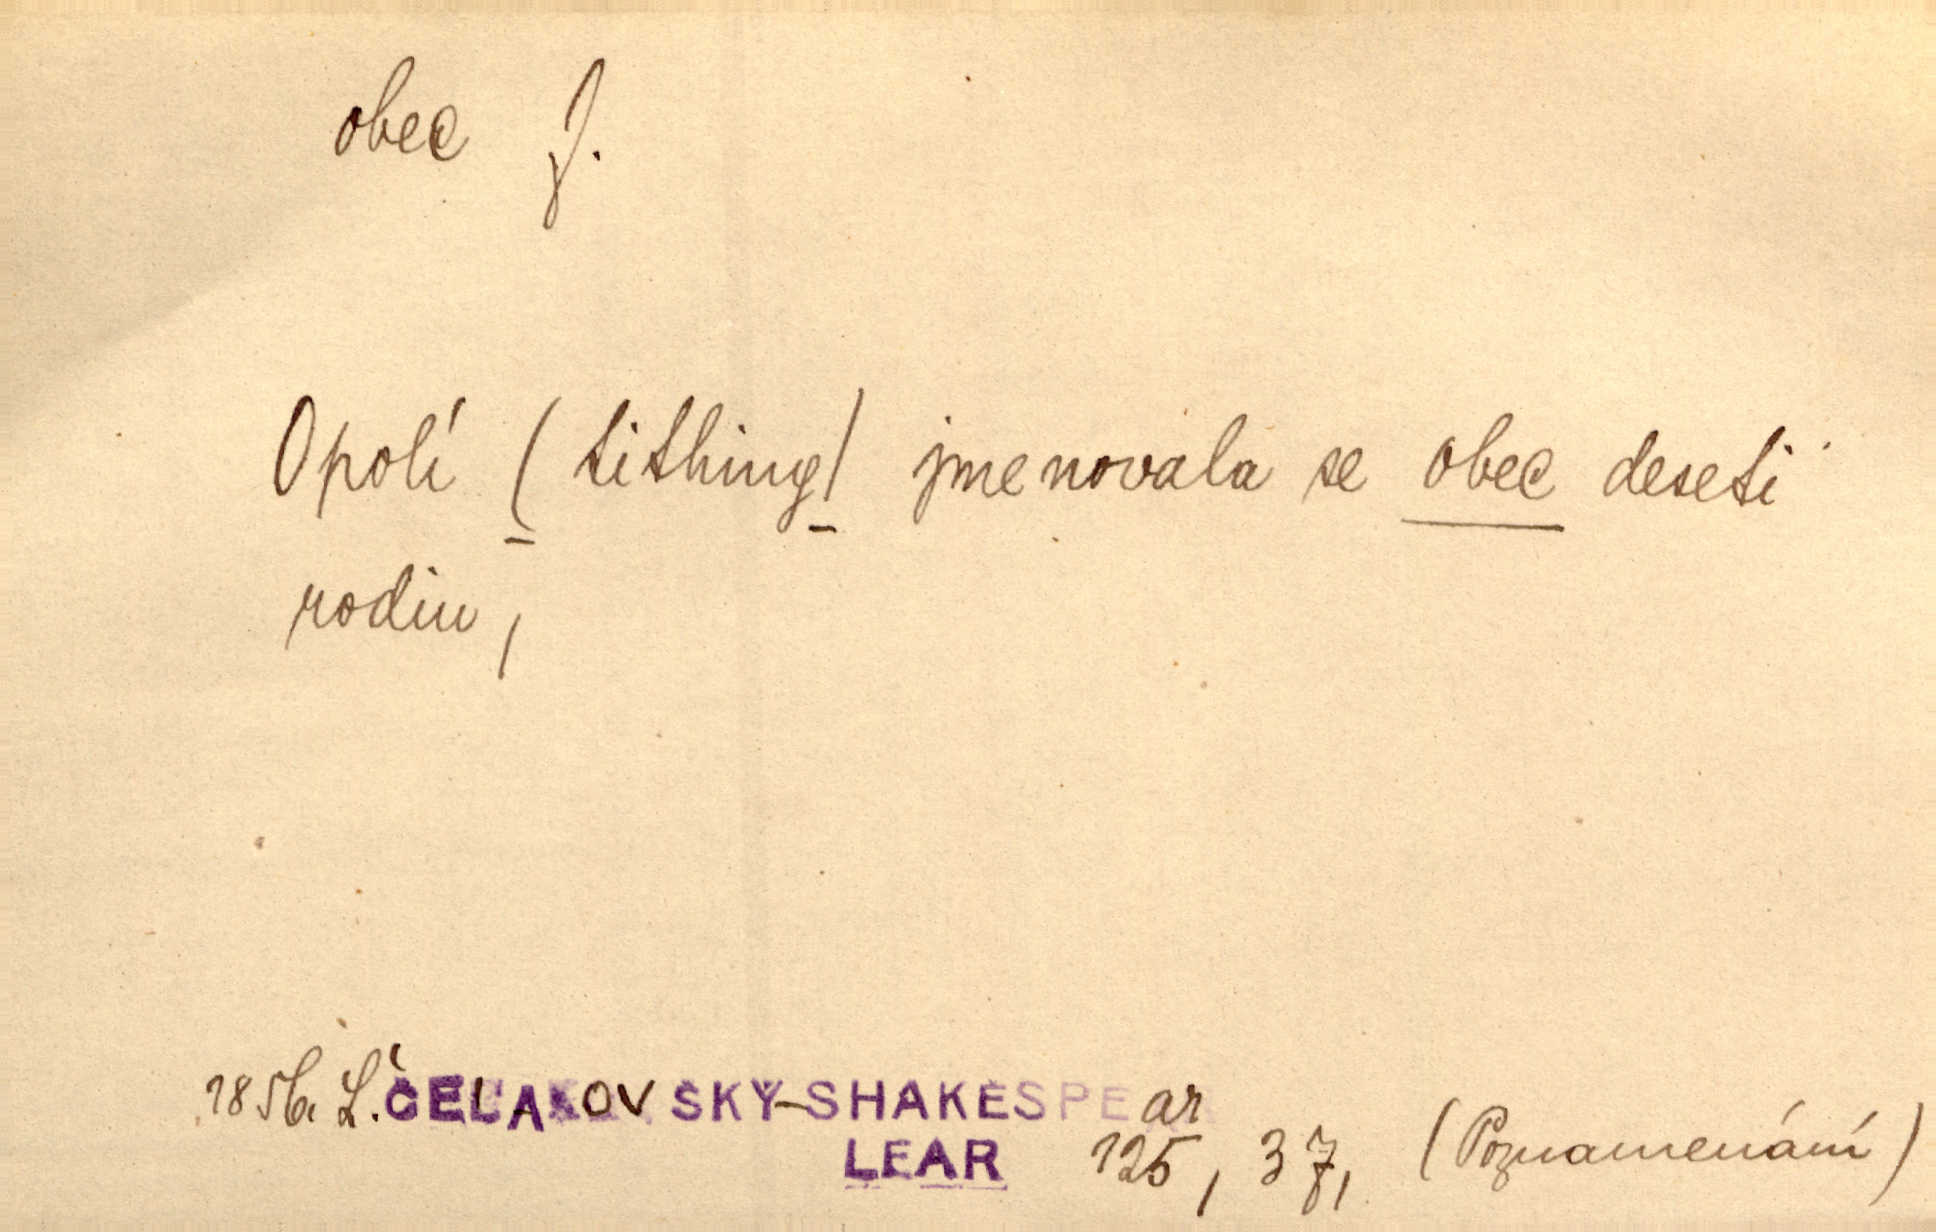 obec f.
Opolí (tithing) jmenovala se obec deseti
rodin,
1856. L. ČELAKOVSKÝ-SHAKESPEar
LEAR 125, 37, (Poznamenání)